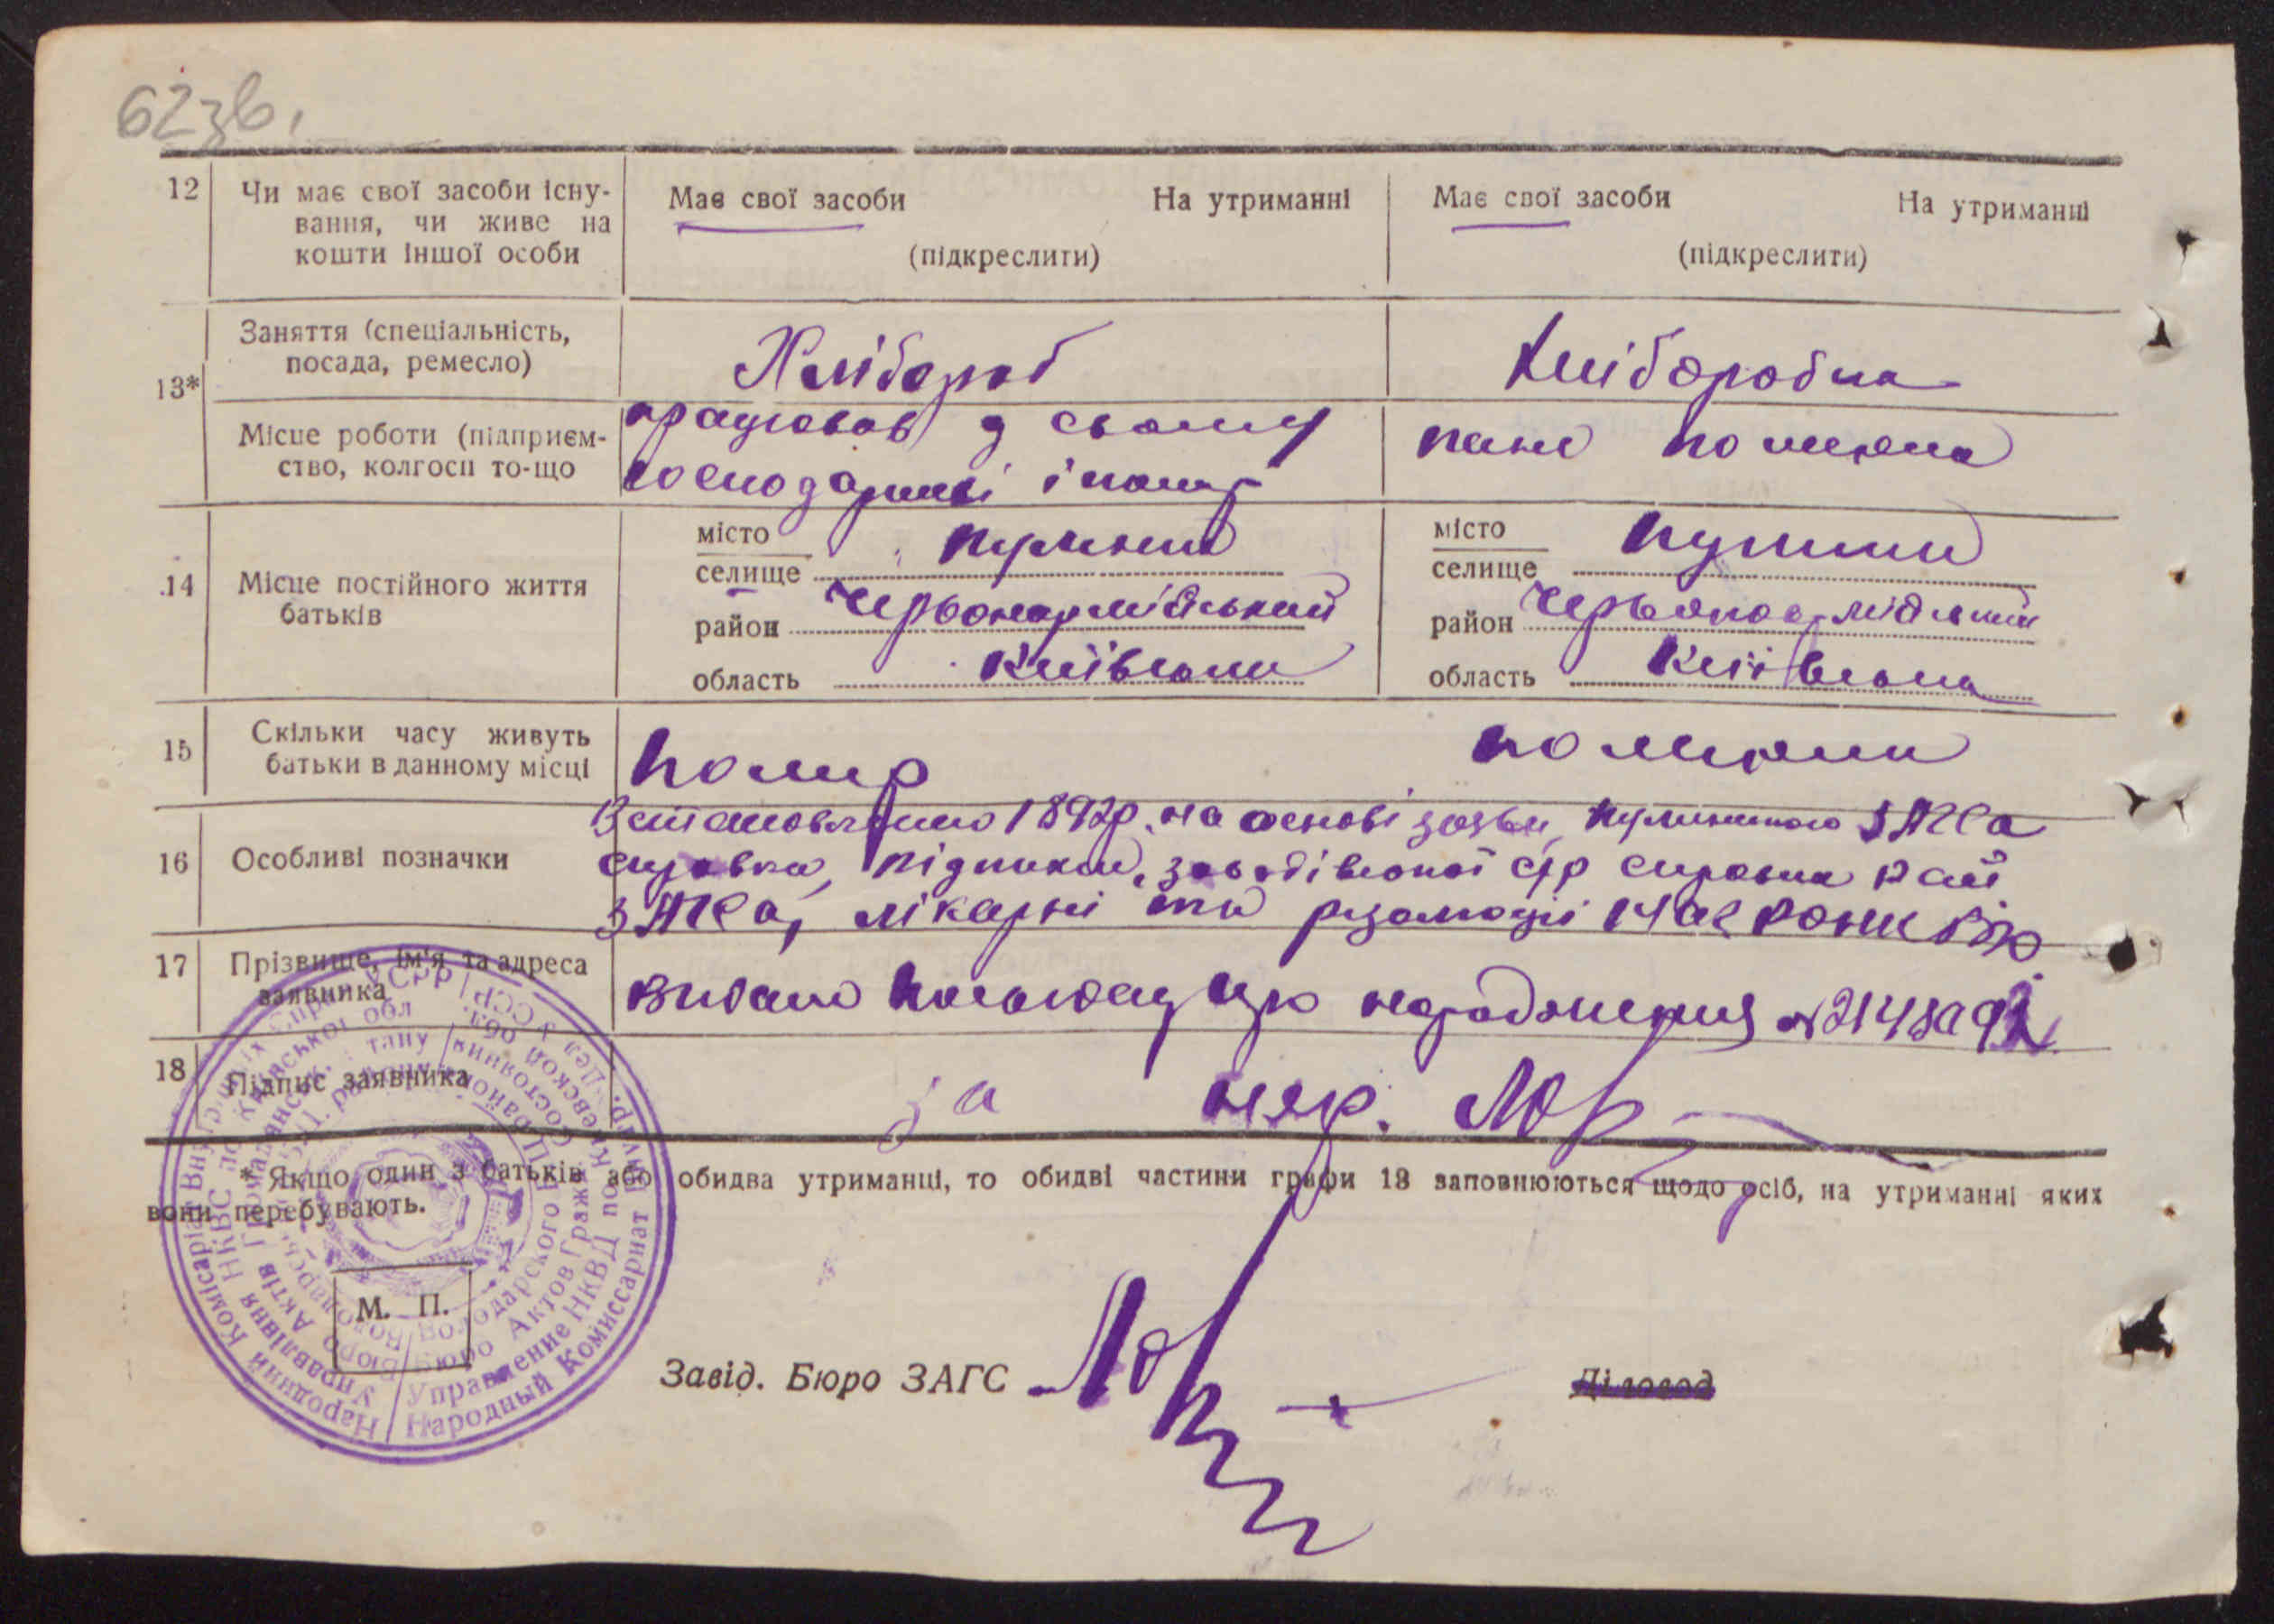 62зв.
12 Чи має свої засоби існу-
вання, чи живе на
кошти іншої особи
Має свої засоби На утриманні
(підкреслити)
Має свої засоби На утриманні
(підкреслити)
13*
Заняття (спеціальність,
посада, ремесло)
Хлібороб
Хліборобка
Місце роботи (підприєм-
ство, колгосп то-що
працював у своему
господарстві і помер
теж померла
14 Місце постійного життя
батьків
місто
селище Пулини
район Червоноармійський
область Київська
місто
селище Пулини
район Червоноармійський
область Київська
15 Скільки часу живуть
батьки в данному місці
помер
померли
16 Особливі позначки
Встановлено 1892р. на основі заяви, Пулинського ЗАГСа
справка, підписки, с/р справка Рай
ЗАГСа, лікарні та резолюції
17 Прізвище, ім'я та адреса
заявника
Видано народження № 214
18 Підпис заявника
за нач.
* Якщо один з батьків або обидва утриманці, то обидві частини графи 13 заповнюються щодо осіб, на утриманні яких
вони перебувають.
М. П.
Завід. Бюро ЗАГС
Діловод
Народний Комісаріат Внутрішніх Справ УСРР
Управління НКВС по Київській обл
Бюро Актів Громадянськ. стану
Народный Комиссариат Внутр. Дел УССР
Управление НКВД по Киевской обл.
Бюро Актов Гражд. Состояния
Володарского Района